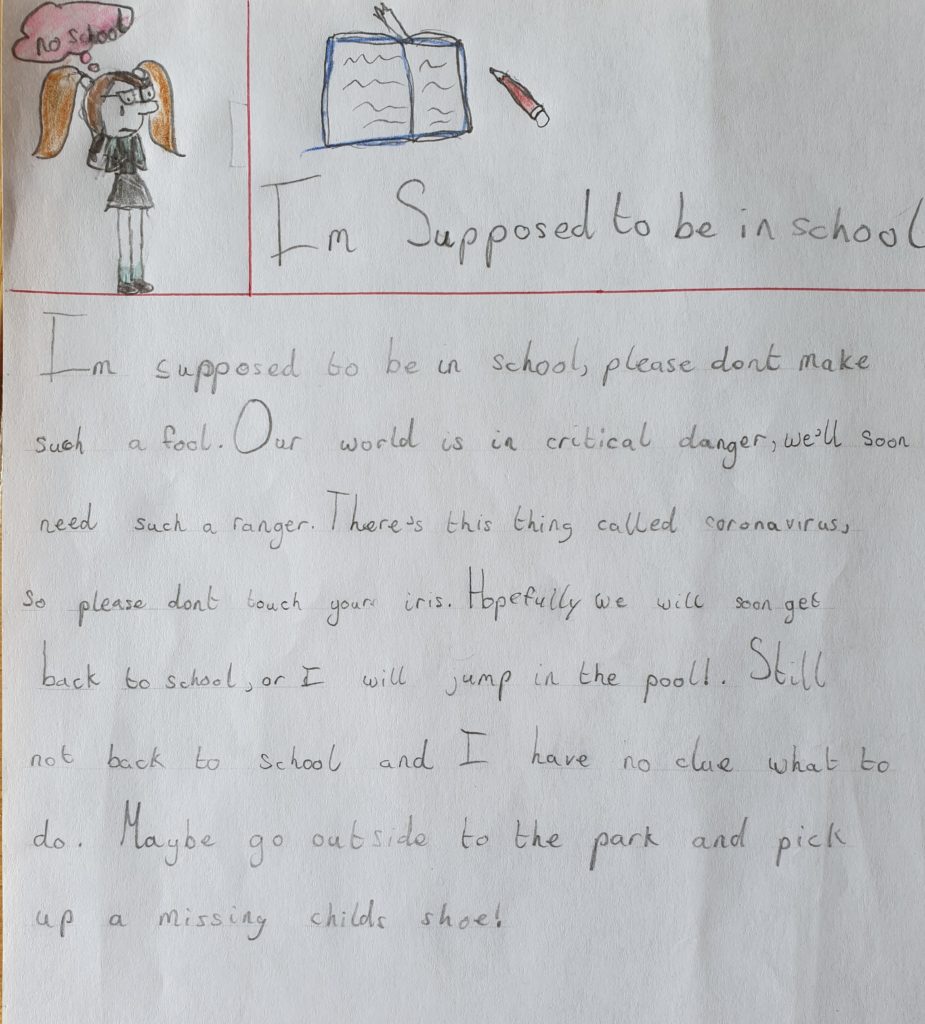 no school
Im Supposed to be in school
Im supposed to be in school, please dont make
such a fool. Our world is in critical danger, we'll soon
need such a ranger. There's this thing called coronavirus,
so please dont touch your iris. Hopefully we will soon get
back to school, or I will jump in the pool!. Still
not back to school and I have no clue what to
do. Maybe go outside to the park and pick
up a missing childs shoe!